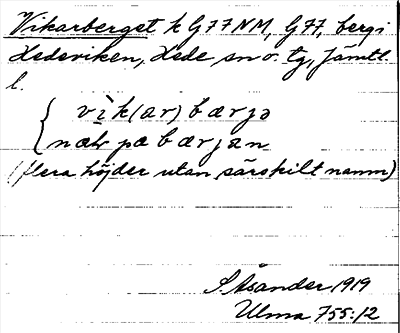 Vikarberget k G77NM, G77, berg i
Hedeviken, Hede sn o. tg, Jämtl.
l.
vìk(ar)bærjə
næɫr pa bærjæn
(flera höjder utan särskilt namn)
S. Åsander 1919
Ulma 755:12